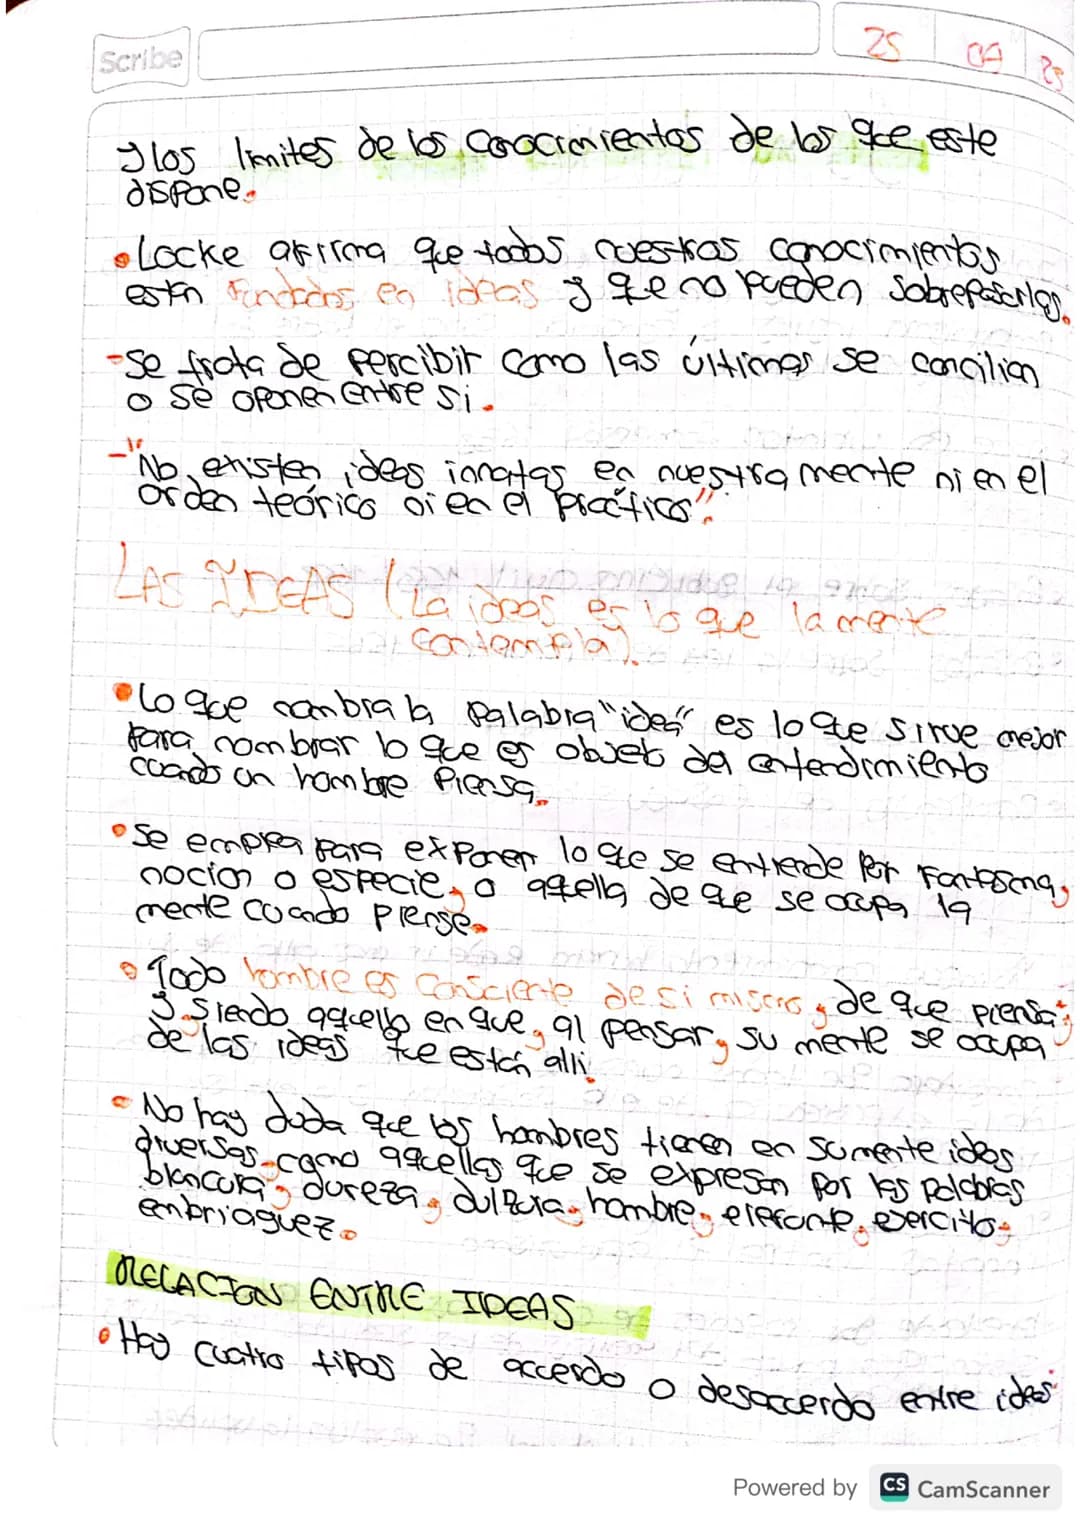 Scribe
25 04 25
y los limites de los conocimientos de los que este
dispone.
• Locke afirma que todos nuestros conocimientos
estn fundados en ideas y que no pueden sobrepasarlas.
- Se trata de percibir como las últimas se concilian
o se oponen entre si.
- "No existen ideas innatas en nuestra mente ni en el
orden teórico ni en el práctico".
LAS IDEAS (La ideas es lo que la mente
contempla).
• Lo que nombra la palabra "idea" es lo que sirve mejor
para nombrar lo que es objeto del entendimiento
cuando un hombre piensa.
• Se emplea para exponer lo que se entiende por fantasma,
nocion o especie, o aquella de que se ocupa la
mente cuando piense.
• Todo hombre es consciente de si mismo, de que piensa;
y siendo aquello en que, al pensar, su mente se ocupa
de las ideas que están alli.
• No hay duda que los hombres tienen en su mente ideas
diversas como aquellas que se expresan por las palabras
blancura, dureza, dulzura, hombre, elefante, ejercito,
embriaguez.
RELACION ENTRE IDEAS
• Hay cuatro tipos de acuerdo o desacuerdo entre ideas
Powered by CS CamScanner